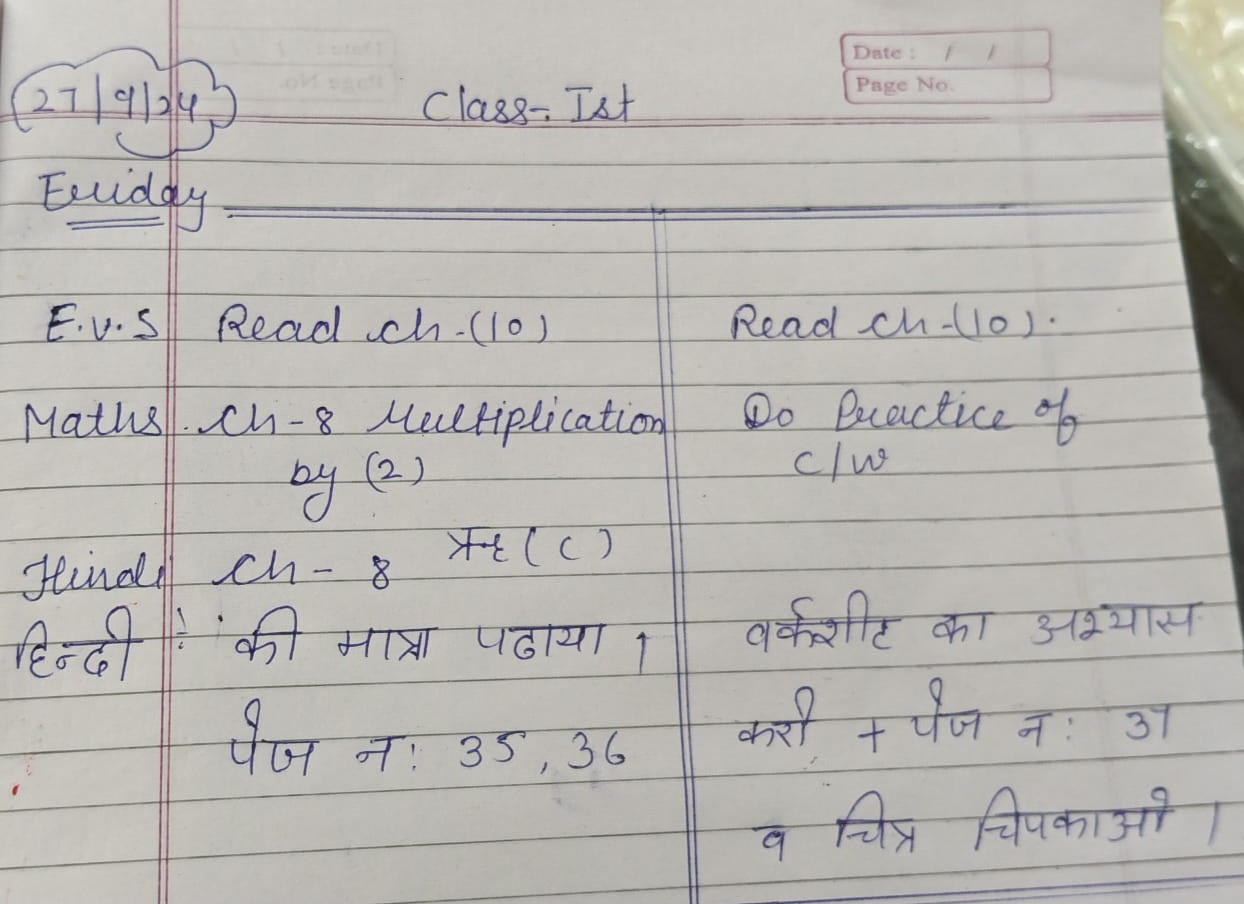 Date : / /
Page No.
27/9/24
Class-. Ist
Friday
E.v.S Read ch-(10) Read ch-(10).
Maths. Ch-8 Multiplication Do Practice of
by (2) c/w
Hindi Ch- 8 (c)
हिन्दी ÷ की मात्रा पढाया । वर्कशीट का अभ्यास
पेज न: 35, 36 करो + पेज न: 37
व चित्र चिपकाओ ।